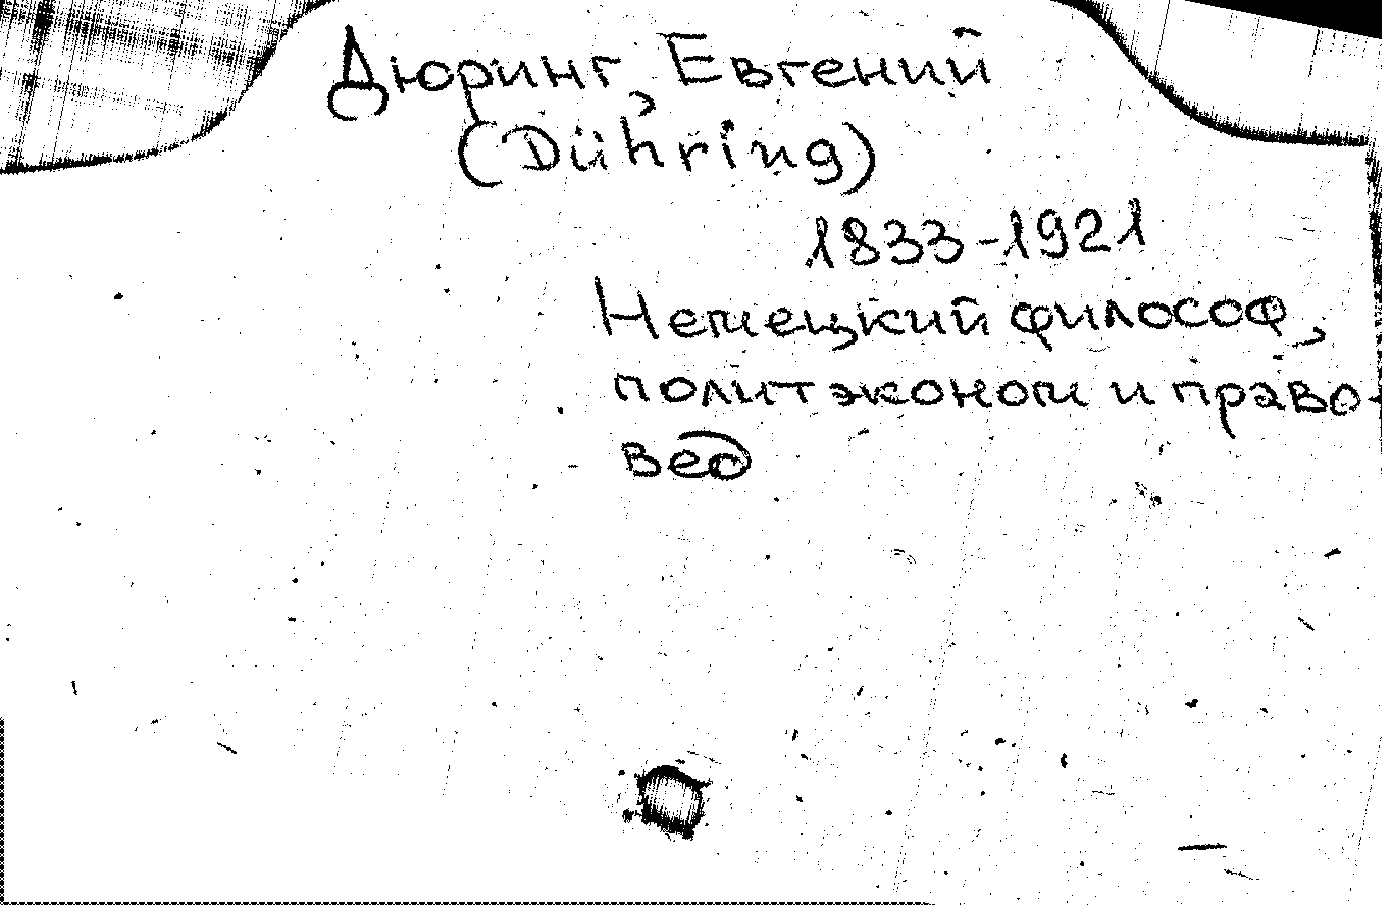 Дюринг, Евгений
(Dühring)
1833-1921
Немецкий философ,
политэконом и право-
вед